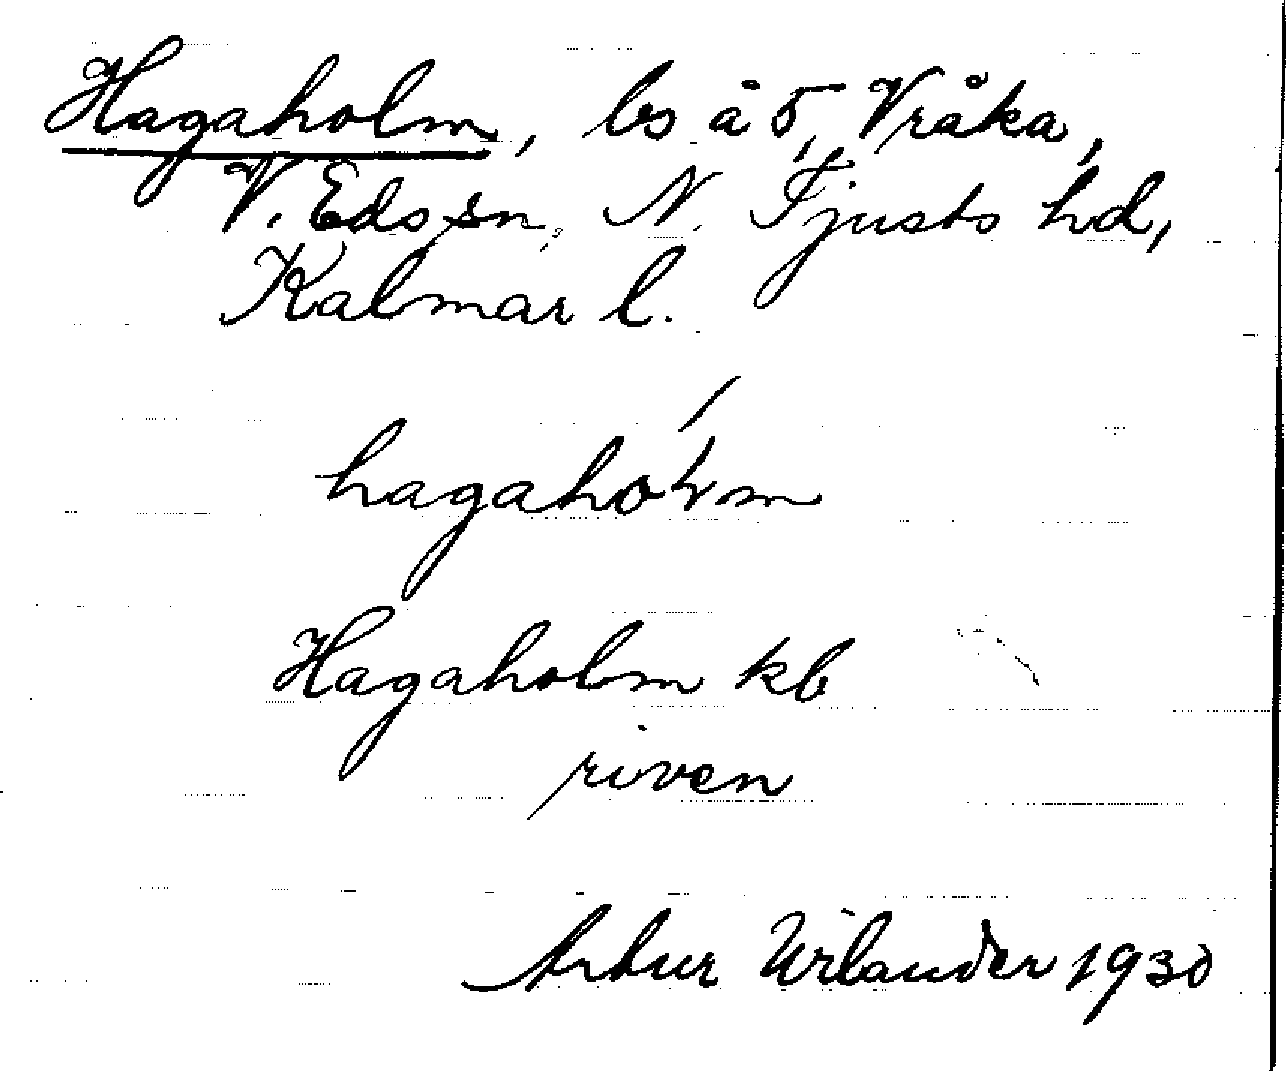 Hagaholm, ls å 5, Vråka,
V. Eds sn, N. Tjusts hd,
Kalmar l.
hagahoʹlm
Hagaholm kb
riven
Artur Wilander 1930